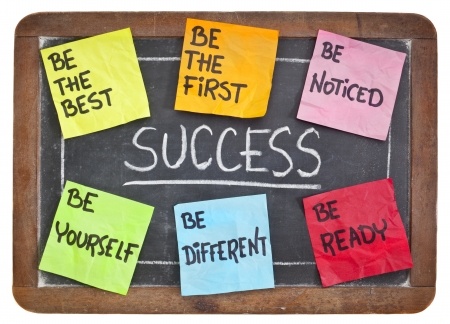 BE
THE
BEST
BE
THE
FiRST
BE
NOTiCED
SUCCESS
BE
YOURSELF
BE
DiFFERENT
BE
READY